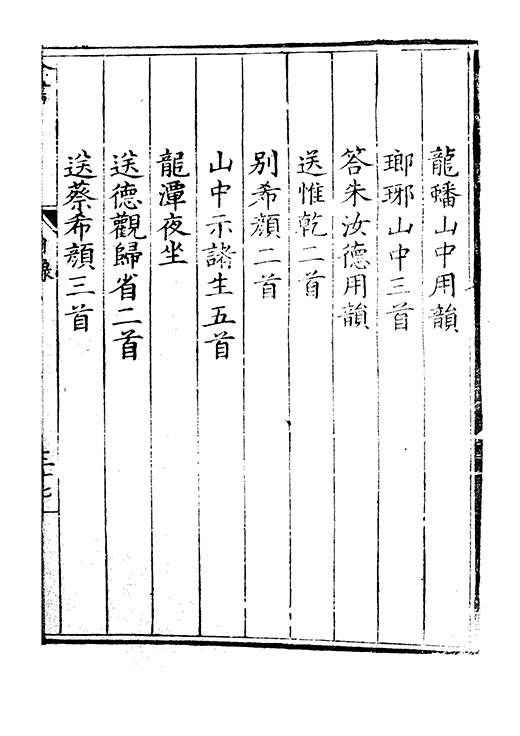 龍蟠山中用韻
瑯琊山中三首
答朱汝德用韻
送惟乾二首
別希顔二首
山中示諸生五首
龍潭夜坐
送德觀歸省二首
送蔡希顔三首
目錄
三十七